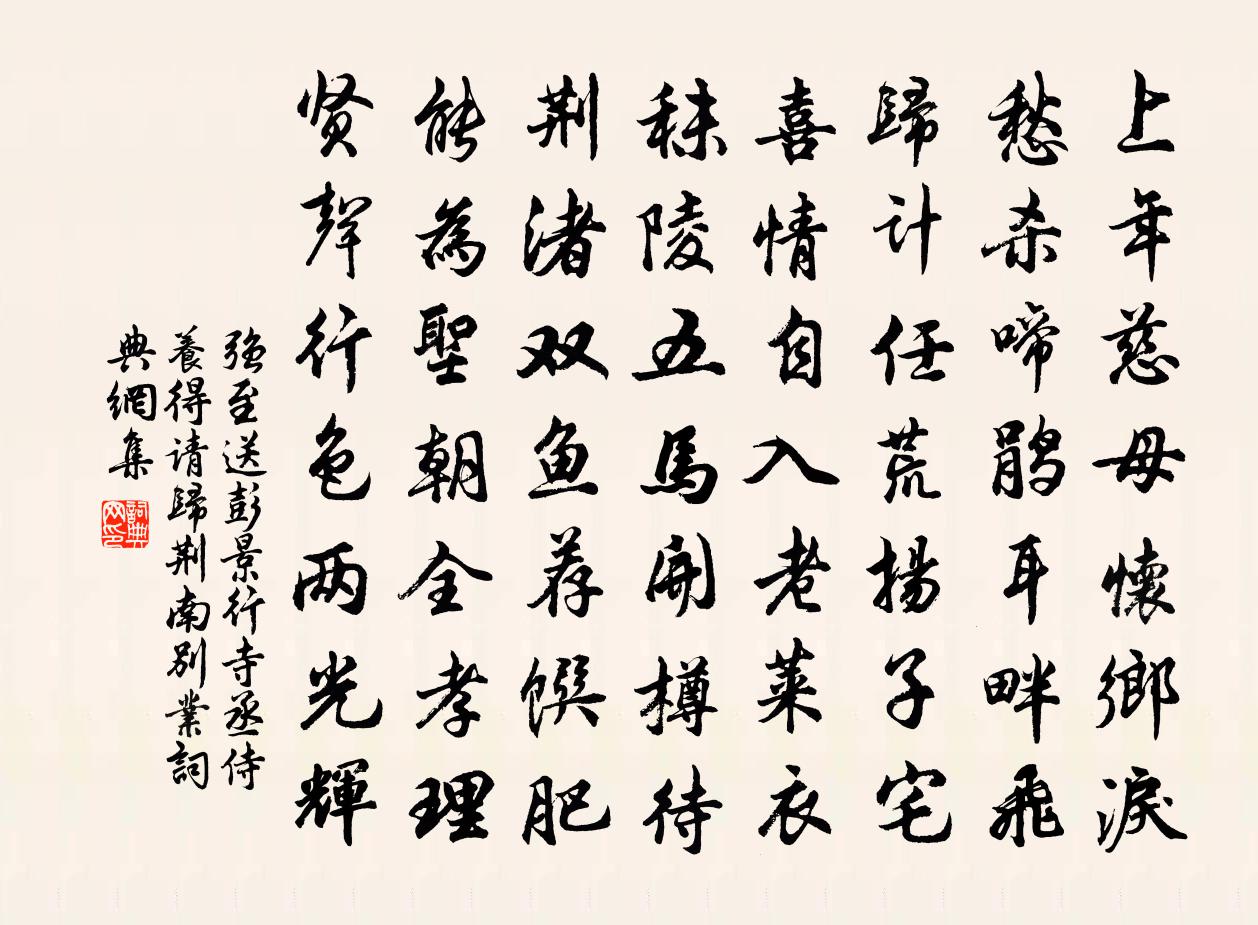 上年慈母懷鄉淚
愁杀啼鹃耳畔飛
歸計任荒揚子宅
喜情自入老萊衣
秣陵五馬開樽待
荆渚双鱼荐馔肥
能為聖朝全孝理
贤聲行色两光輝
强至送彭景行寺丞侍
養得请歸荆南别業詞
典網集
詞典
网印